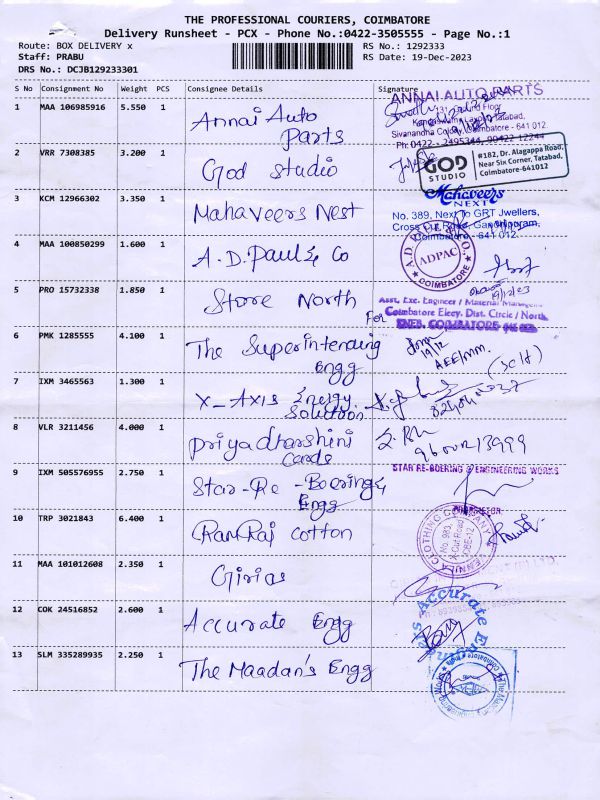 THE PROFESSIONAL COURIERS, COIMBATORE
Delivery Runsheet - PCX - Phone No.:0422-3505555 - Page No.:1
Route: BOX DELIVERY x
RS No.: 1292333
Staff: PRABU
RS Date: 19-Dec-2023
DRS No.: DCJB129233301
S No AWB No Weight PCS Consignee Details Signature
1 MAA 106985916 5.550 1 Annai Auto
Parts
ANNAI AUTO PARTS
Sivanandha Colony, Coimbatore - 641 012
Ph: 0422 - 2495344, 90422 12244
2 VRR 7308385 3.200 1 God Studio
GOD
STUDIO
#182, Dr. Alagappa Road,
Near Six Corner, Tatabad,
Coimbatore-641012
3 KCM 12966302 3.350 1 Mahaveers Nest
Mahaveers
NEXT
No. 389, Next to GRT Jwellers,
Cross Cut Road, Gandhipuram,
Coimbatore - 641 012.
4 MAA 100850299 1.600 1 A.D. Paul & Co
ADPAC
COIMBATORE
5 PRO 15732338 1.850 1 Store North
19/12/23
For
Asst. Exe. Engineer / Material Management
Coimbatore Elecy. Dist. Circle / North
6 PMK 1285555 4.100 1 The Superintending
Engg
19/12
AEE/MM.
7 IXM 3465563 1.300 1 X-Axis Energy
Solution
8 VLR 3211456 4.000 1 Priyadharshini
Cards
9 IXM 505576955 2.750 1 Star-Re-Boering &
Engg
STAR RE-BOERING & ENGINEERING WORKS
PROPRIETOR
10 TRP 3021843 6.400 1 RamRaj Cotton
CLOTHING COMPANY
11 MAA 101012608 2.350 1 Girias
12 COK 24516852 2.600 1 Accurate Engg
Accurate
13 SLM 335289935 2.250 1 The Maadan's Engg